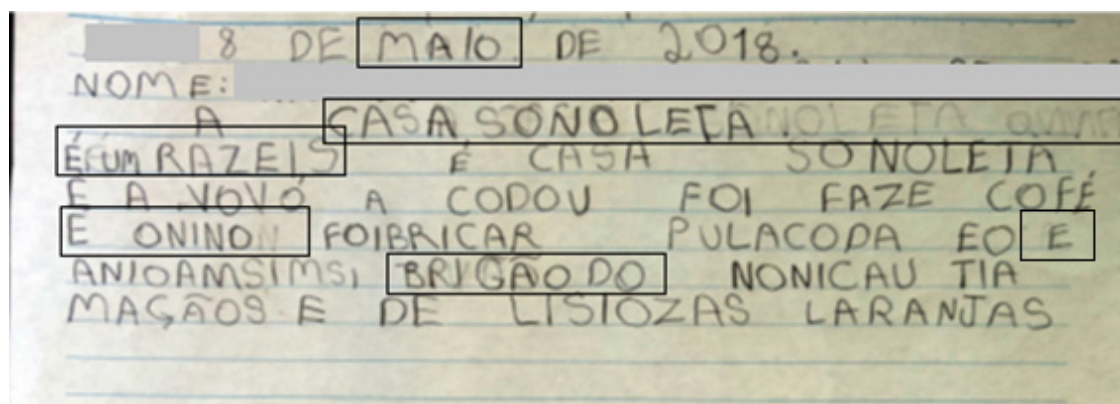 8 DE MAIO DE 2018.
NOME:
A CASA SONOLETA.
É UM RAZEIS É CASA SONOLETA
E A VOVÓ A CODOU FOI FAZE COFÉ
E ONINO FOIBRICAR PULACODA EO E
ANIOAMSIMS, BRIGÃO DO NONICAU TIA
MAÇÃOS E DE LISIOZAS LARANJAS